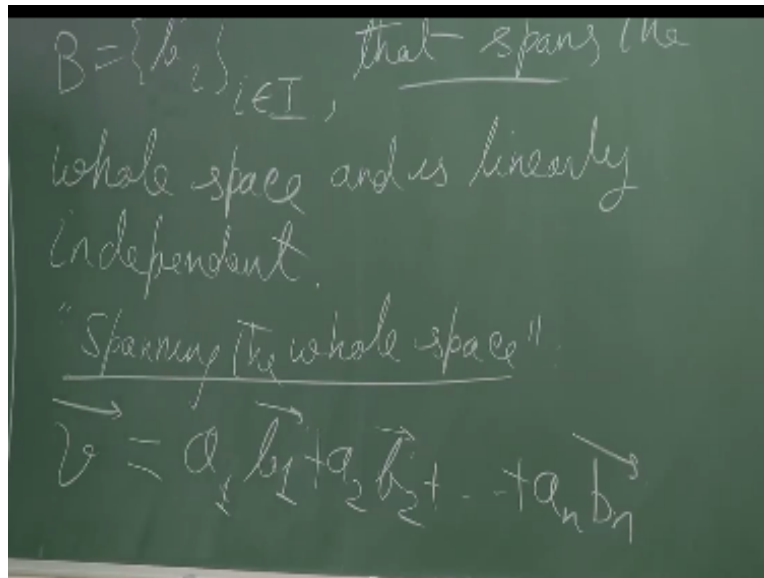 B = {b_i}_{i∈I}, that spans the
whole space and is linearly
independent.
"Spanning the whole space".
\vec{v} = a_1 \vec{b_1} + a_2 \vec{b_2} + ... + a_n \vec{b_n}